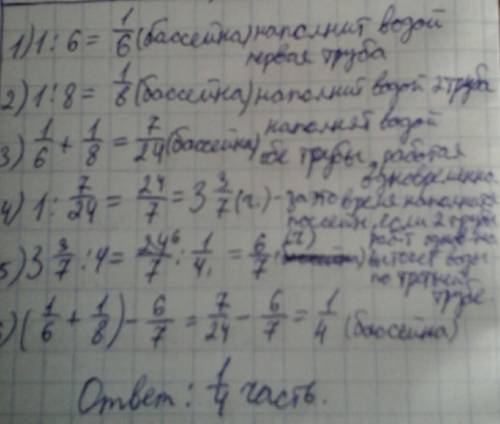 1) 1 : 6 = 1/6 (бассейна) наполнит водой
первая труба
2) 1 : 8 = 1/8 (бассейна) наполнит водой 2 труба
3) 1/6 + 1/8 = 7/24 (бассейна) наполнят водой
обе трубы, работая
одновременно
4) 1 : 7/24 = 24/7 = 3 3/7 (ч.) - за это время наполнится
бассейн, если 2 трубы
5) 3 3/7 : 4 = 24 6/7 : 1/4 1 = 6/7 (ч)
воды
по третьей
трубе
) (1/6 + 1/8) - 6/7 = 7/24 - 6/7 = 1/4 (бассейна)
Ответ: 1/4 часть.